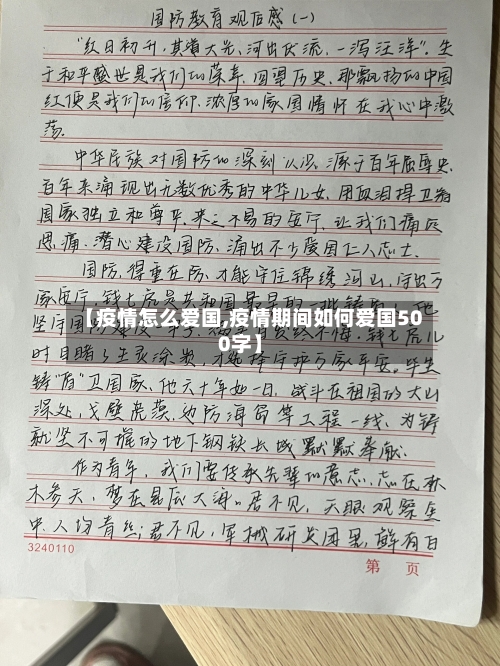 国防教育观后感(一)
“红日初升,其道大光,河出伏流,一泻汪洋”。生
于和平盛世是我们的荣幸,回望历史,那飘扬的中国
红便是我们的信仰,浓厚的家国情怀在我心中激
荡。
中华民族对国防的深刻认识,源于百年屈辱史,
百年来涌现出无数优秀的中华儿女,用血泪捍卫着
国家独立和尊严,来之不易的安宁,让我们痛定
思痛,潜心建设国防,涌出不少爱国仁人志士。
国防,得重在防,才能守住锦绣河山,守出万
家安宁,钱七虎
坚守国
【疫情怎么爱国,疫情期间如何爱国50
0字】
时目睹了生灵涂炭,才选择守护万家平安。毕生
铸“盾”卫国家,他六十年如一日,战斗在祖国的大山
深处,戈壁荒漠,边防海岛等工程一线,为铸
就坚不可摧的地下钢铁长城默默奉献。
作为青年,我们要传承先辈的意志,志在秋
木参天,梦在星辰大海。君不见,天眼观察集
中,人均青丝;君不见,军械研发团里,鲜有白
3240110
第 页